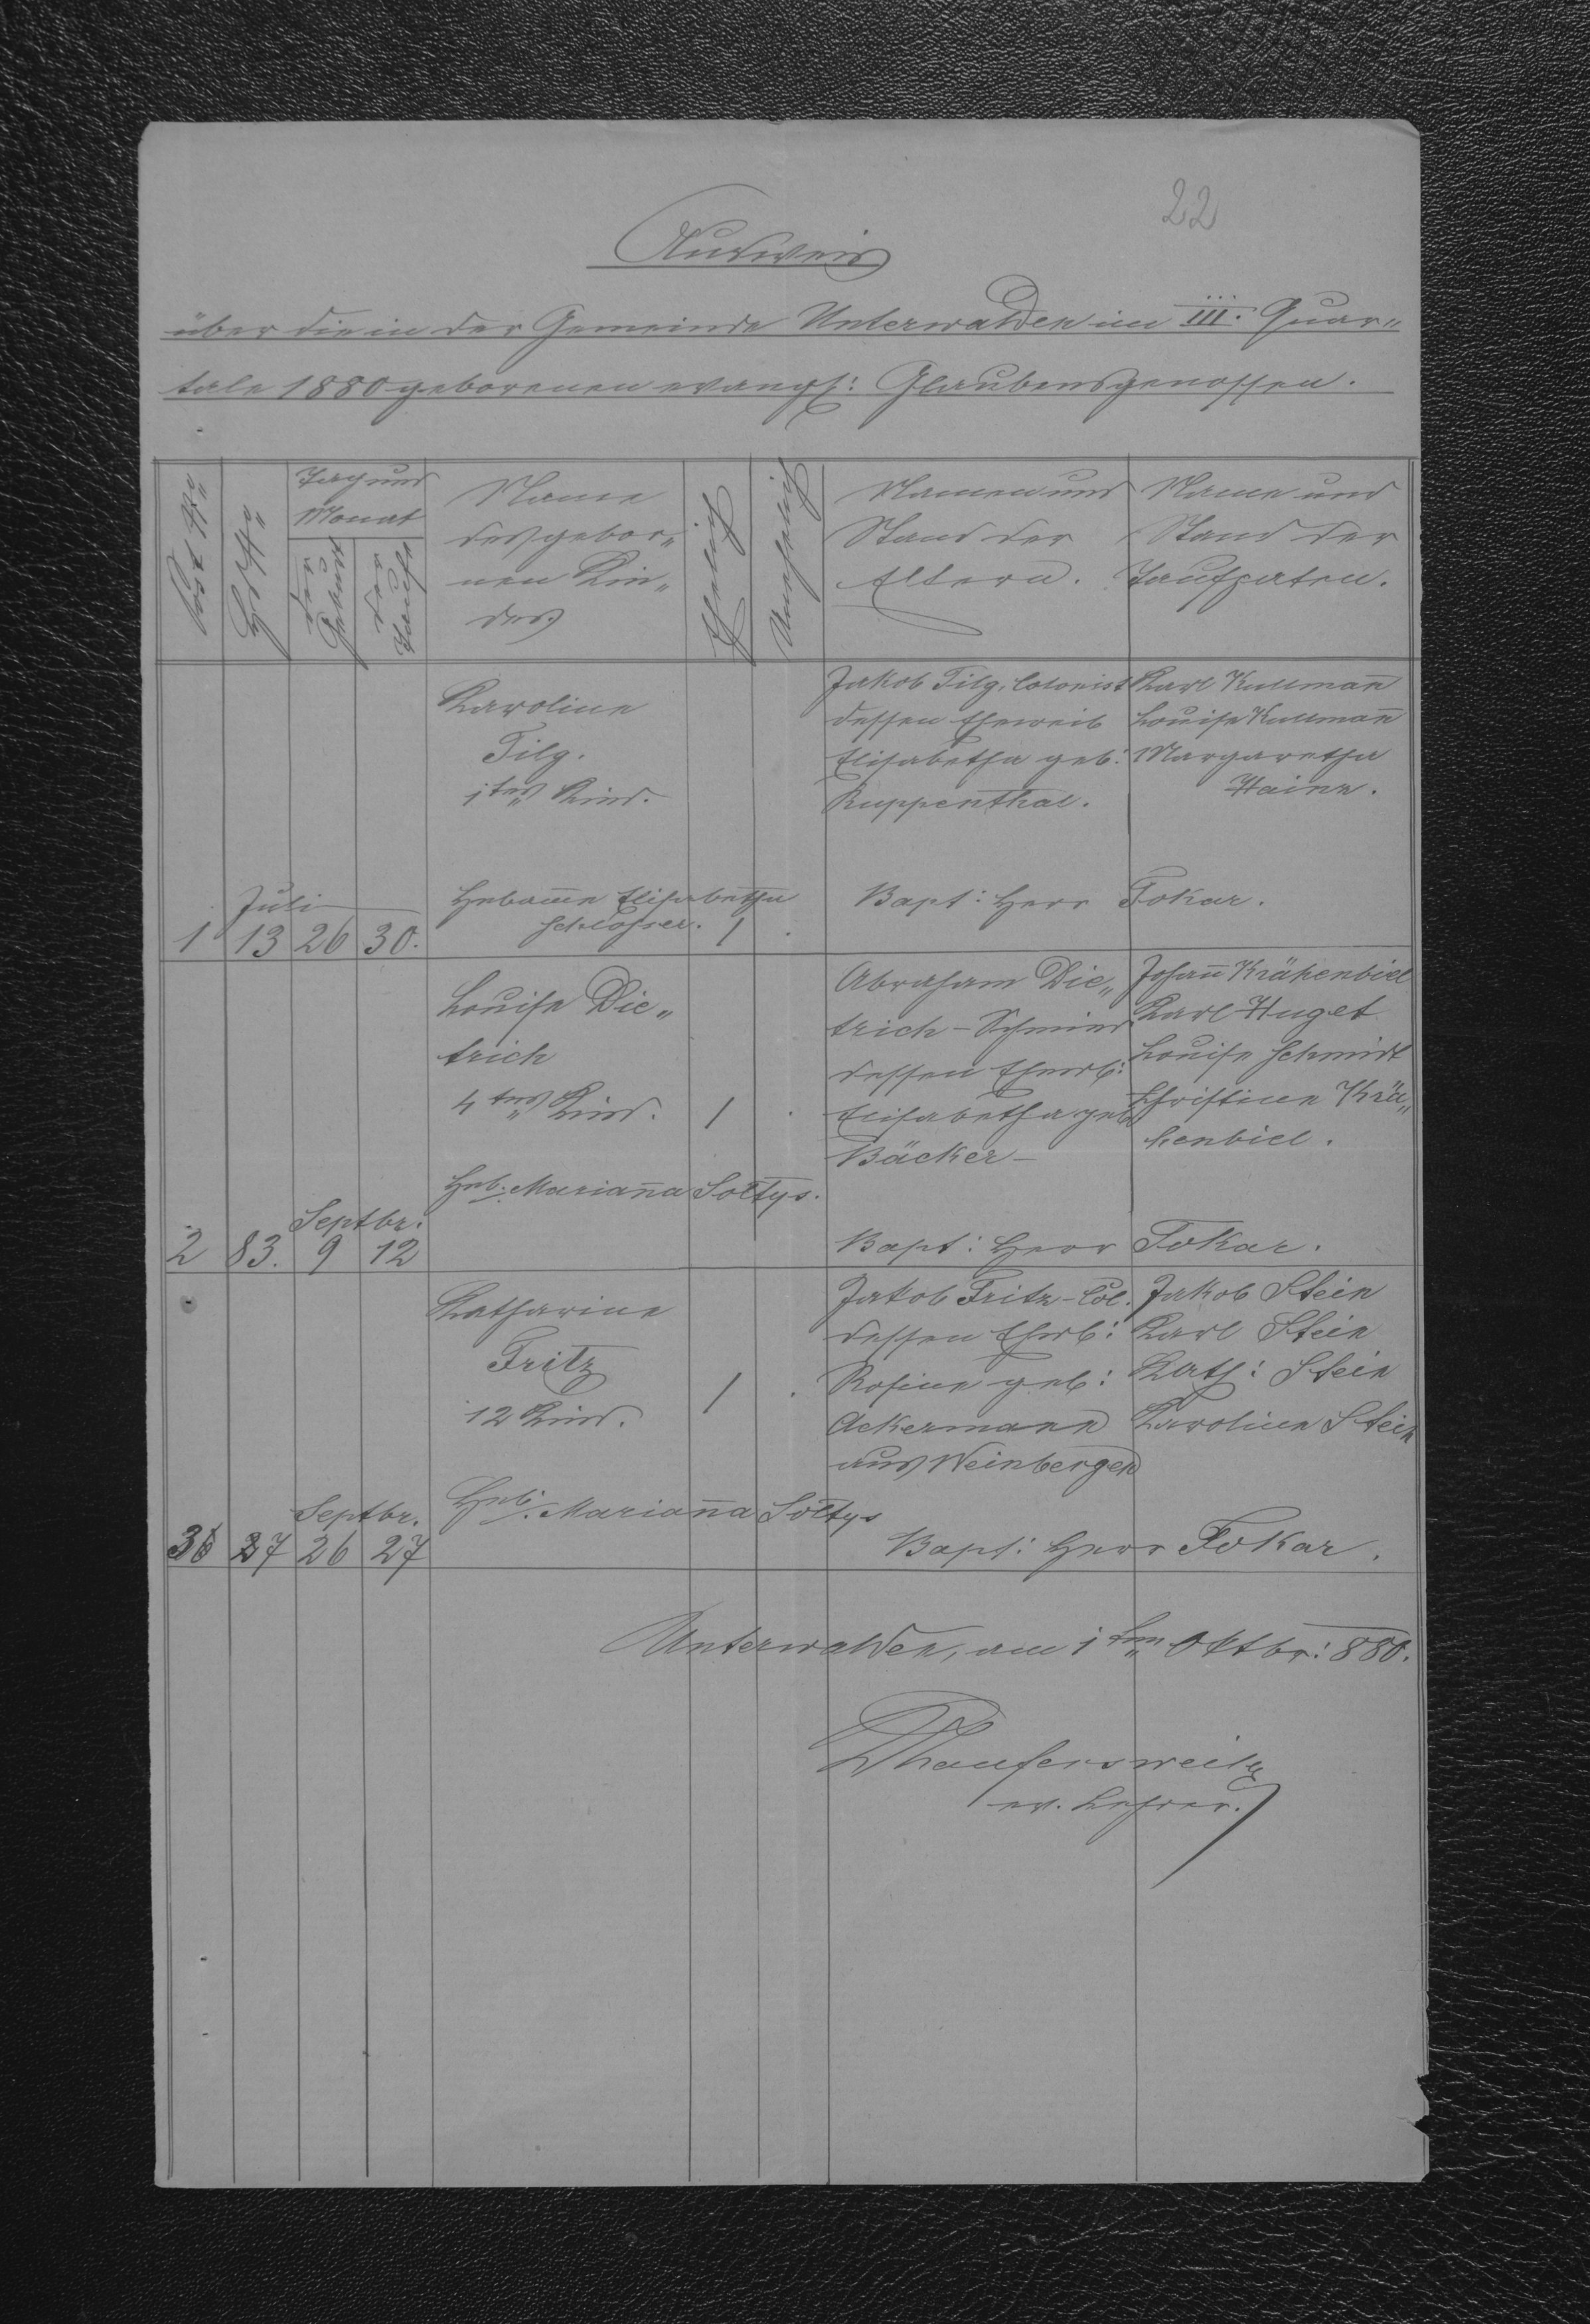 22
Ausweis
über die in der Gemeinde Unterwalden im III. Quar„
tale 1880 geborenen evangl: Glaubensgenossen.
Post No
Hs No
Tag und
Monat
der
Geburt
der
Taufe
Name
des gebor„
nen Kin„
des
Ehelig
Unehelig
Namen und
Stand der
Eltern.
Name und
Stand der
Taufpaten.
Juli
1 13 26 30.
Karoline
Filg.
1tes Kind.
Hebamme Elisabetha
Schlosser.
1 .
Jakob Filg, Colonist
dessen Eheweib
Elisabetha geb:
Ruppenthal.
Karl Kullmann̄
Louise Kullmann̄
Margaretha
Hainz.
Bapt: Herr Tokar.
Septbr.
2 83. 9 12
Louise Die„
trich
4tes Kind.
Heb. Marian̄a Sołtys.
1 .
Abraham Die„
trich – Schmied
dessen Ehewb:
Elisabetha geb
Bäcker –
Johan̄ Krähenbiel
Karl Huget
Louise Schmidt
Christine Krä„
henbiel.
Bapt: Herr Tokar.
Septbr.
3 27 26 27
Katharine
Fritz
12 Kind.
Heb. Marian̄a Sołtys
1 .
Jakob Fritz – Col.
dessen Ehewb:
Rosine geb:
Ackermann
aus Weinbergen
Jakob Stein
Karl Stein
Kath: Stein
Karoline Stein
Bapt: Herr Tokar.
Unterwalden, am 1ten Oktbr: 880.
ev. Lehrer.